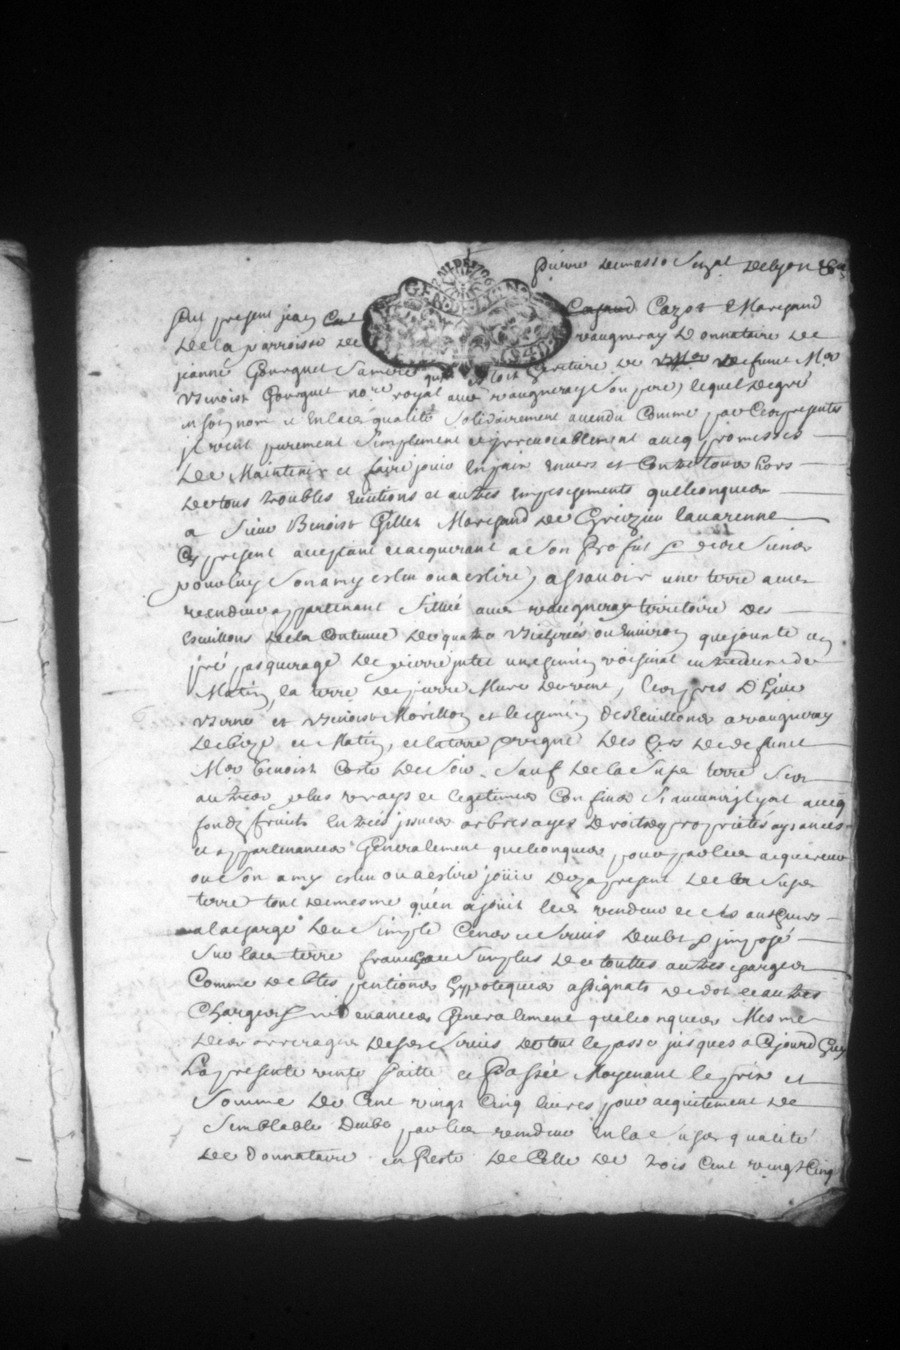 pierre demasso Sozal delyon &
fut present jean Cazot Marchand
de la parroisse de vaugneray Donnataire de
jeanne Gourguet Sa mere heritiere de defunt Mre
Benoist Gourguet nore royal au vaugneray Son pere, lequel de gré
en Son nom et en lad qualité Solidairement a vendu Comme par Ces presentes
il vent purement Simplement et irrevocablement avecq promesses
de Maintenir et faire jouir en paix envers et Contre tous hors
de tous troubles evictions et autres empeschements quelconques
a Sieur Benoist Gillet Marchand de Grezieu lavarenne
Cy present acceptant et acquerant a Son Profit et des Siens
pour luy Son amy esleu ou a eslire, assavoir une terre aud
vendeur appartenant Sittué aud vaugneray territoire des
Esuillons de la Contenue de quatre bicherées ou environ que jouxte un
pré pasquerage de pierre jutet un chemin voisinal entredeux de
Matin, la terre de pierre Mure de vent, Les hers D'
et Benoist Morillon et le chemin des Esuillons a vaugneray
de bize et Matin, et la terre et vigne des hers de defunt
Mre benoist Coste de Soir, Sauf de la Susd terre Ses
autres plus vrays et legitimes Confins Si aucuns il y at avecq
fonds fruits entrées issues arbres ayes droits propriétés aysances
et appartenances Generalement quelconques pour par led acquereur
ou Son amy esleu ou a eslire jouir dez a present de la Susd
terre tout de mesme qu'en a jouit led vendeur et Ses autheurs
a la charge du Simple Cens et Servis deubt et imposé
Sur lad terre franche au Surplus de touttes autres charges
Comme debtes pentions hypoteques assignats de dot et autres
Charges et redevances Generalement quelconques Mesme
des arrerages desd Servis de tout le passé jusques a Cejourd'huy
La presente vente faitte et Passée Moyenant le prix et
Somme de Cent vingt Cinq livres pour acquitement de
Semblable deube par led vendeur en la Susd qualité
de donnataire en Reste de Celle de trois Cent vingt Cinq